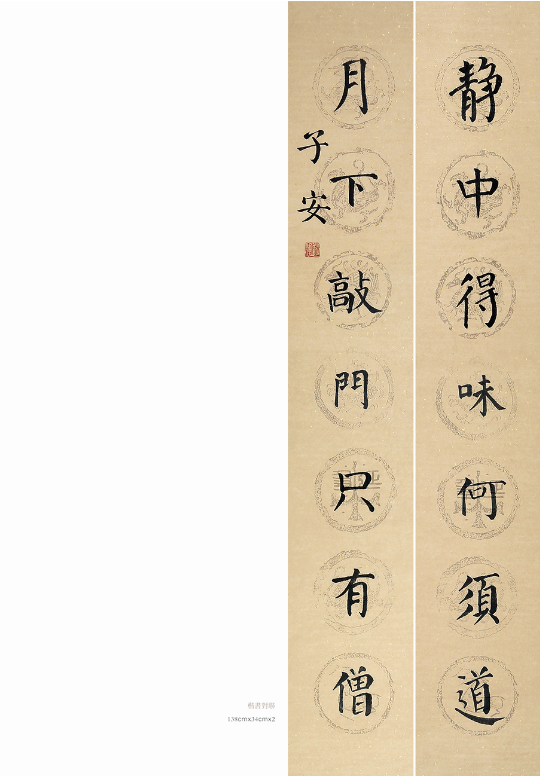 静中得味何須道
月下敲門只有僧
子安
楷書對聯
138cmx34cmx2